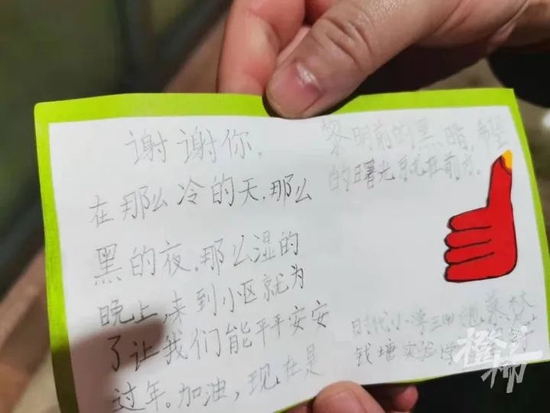 谢谢你.
在那么冷的天.那么
黑的夜.那么湿的
晚上,来到小区就为
了让我们能平平安安
过年。加油,现在是
黎明前的黑暗,
的曙光就在前方。
时代小学三
钱塘实验